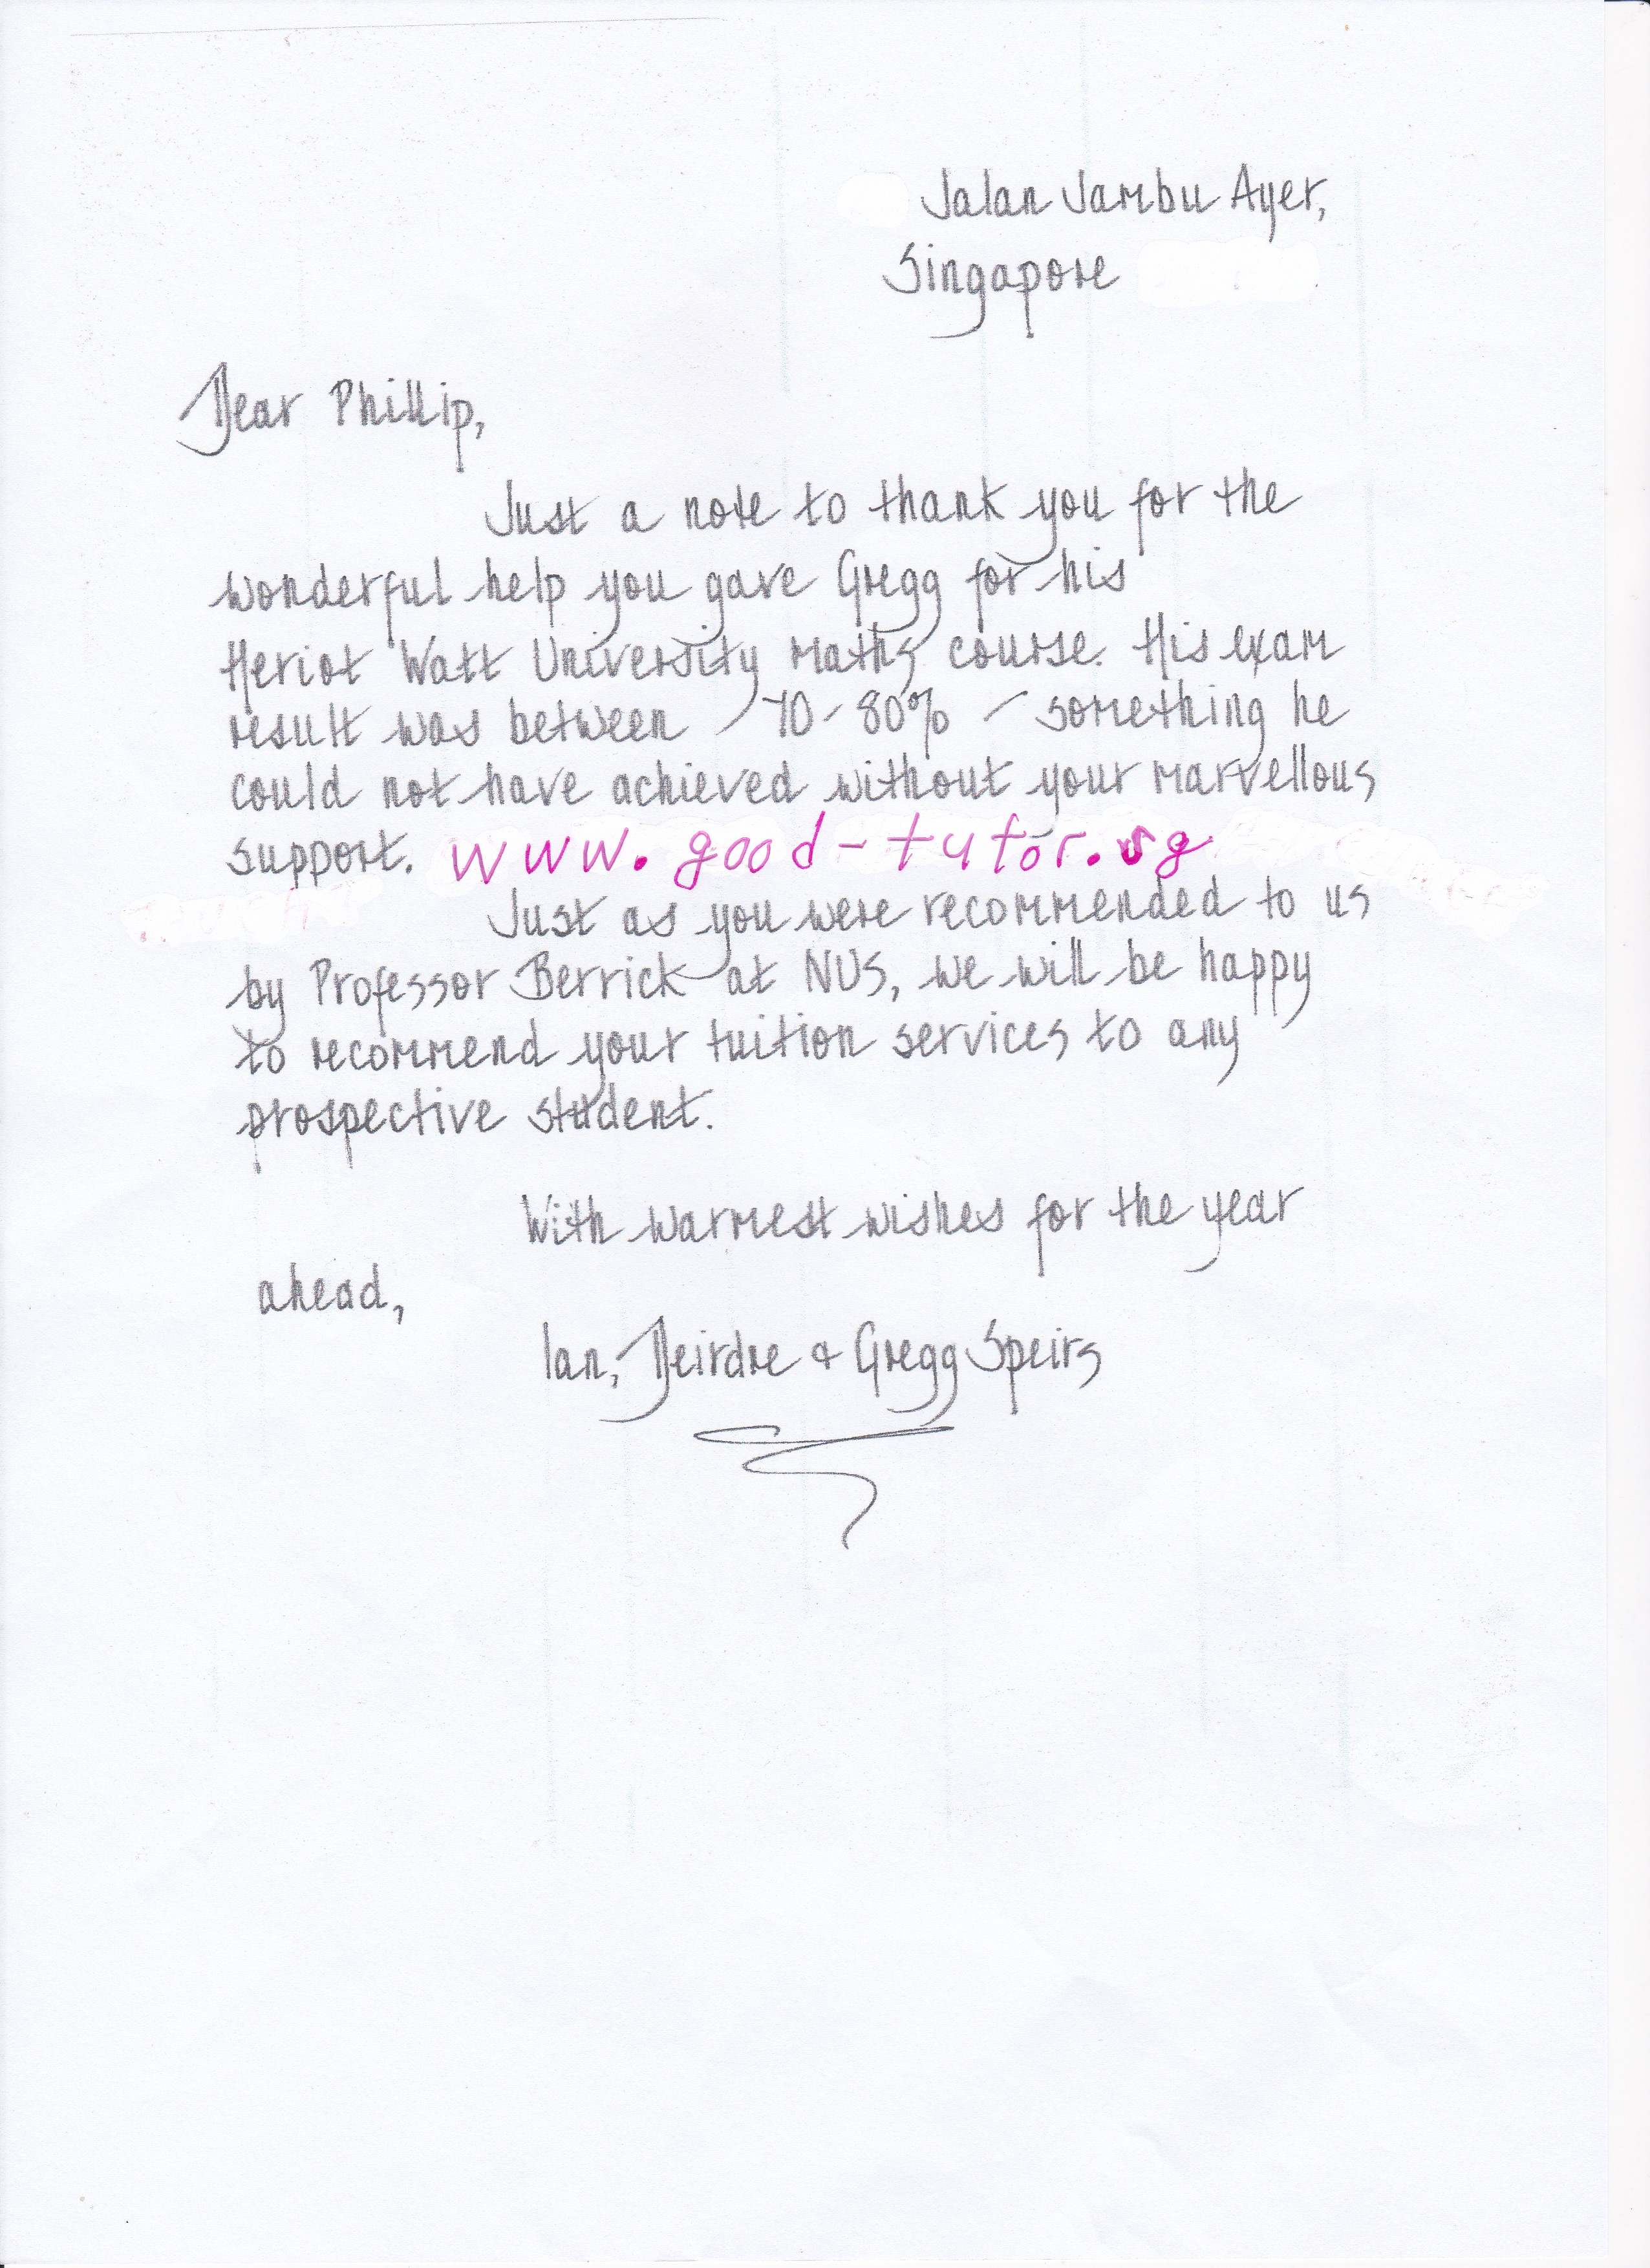 Jalan Jambu Ayer,
Singapore
Dear Phillip,
Just a note to thank you for the
wonderful help you gave Gregg for his
Heriot Watt University maths course. His exam
result was between 70-80% - something he
could not have achieved without your marvellous
support. www.good-tutor.sg
Just as you were recommended to us
by Professor Berrick at NUS, we will be happy
to recommend your tuition services to any
prospective student.
With warmest wishes for the year
ahead,
Ian, Deirdre & Gregg Speirs